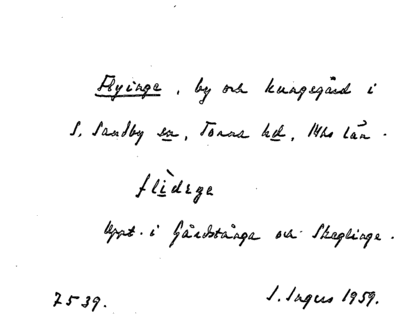 Flyinge, by och kungsgård i
S. Sandby sn, Torna hd, Mhs län.
flìdege
Uppt. i Gårdstånga och Skeglinge.
7539. S. Ingers 1959.